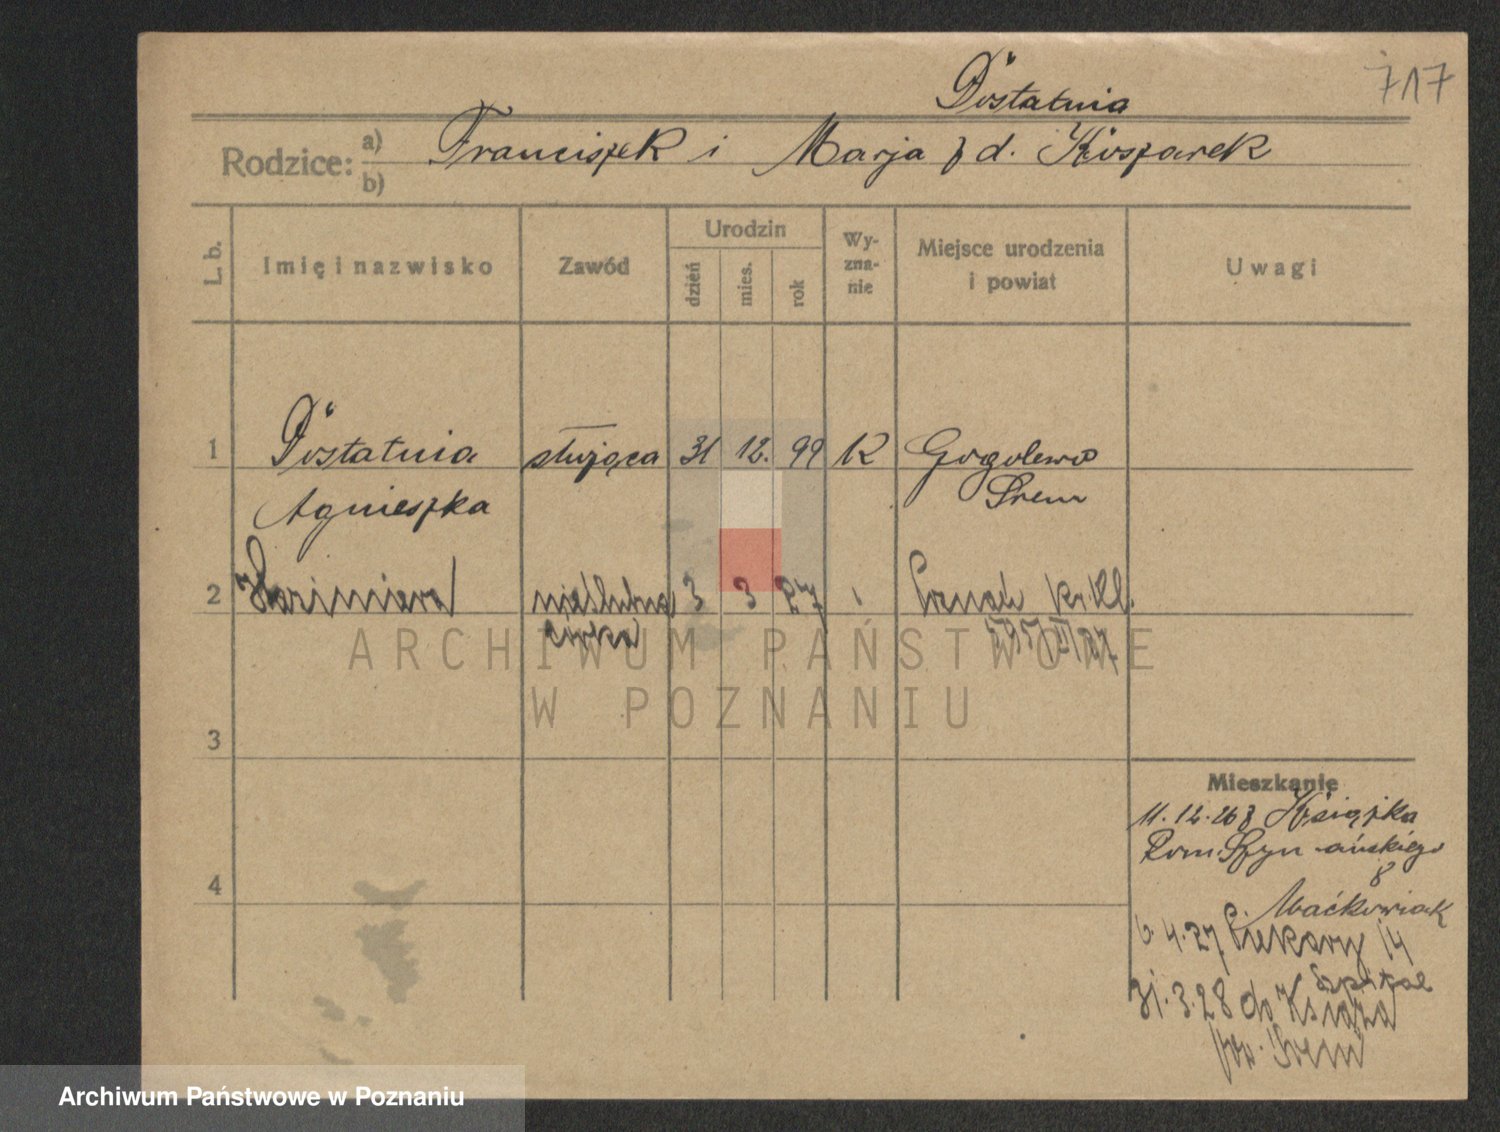 717
Dostatnia
Rodzice: a) b) Franciszek i Marja z d. Koszarek
L. b.
Imię i nazwisko
Zawód
Urodzin
dzień
mies.
rok
Wy-
zna-
nie
Miejsce urodzenia
i powiat
Uwagi
1 Dostatnia służąca 31 12. 99 K Gogolewo
Agnieszka Śrem
2 Kazimiera nieślubna 3 3 27 Poznań
córka
3
4
Mieszkanie
11.12.26 z Książka
Rom. Szymańskiego 8
Maćkowiak
6.4.27 Piekary 14
Szpital
31.3.28 do Książa
pow. Śrem
ARCHIWUM PAŃSTWOWE
W POZNANIU
Archiwum Państwowe w Poznaniu